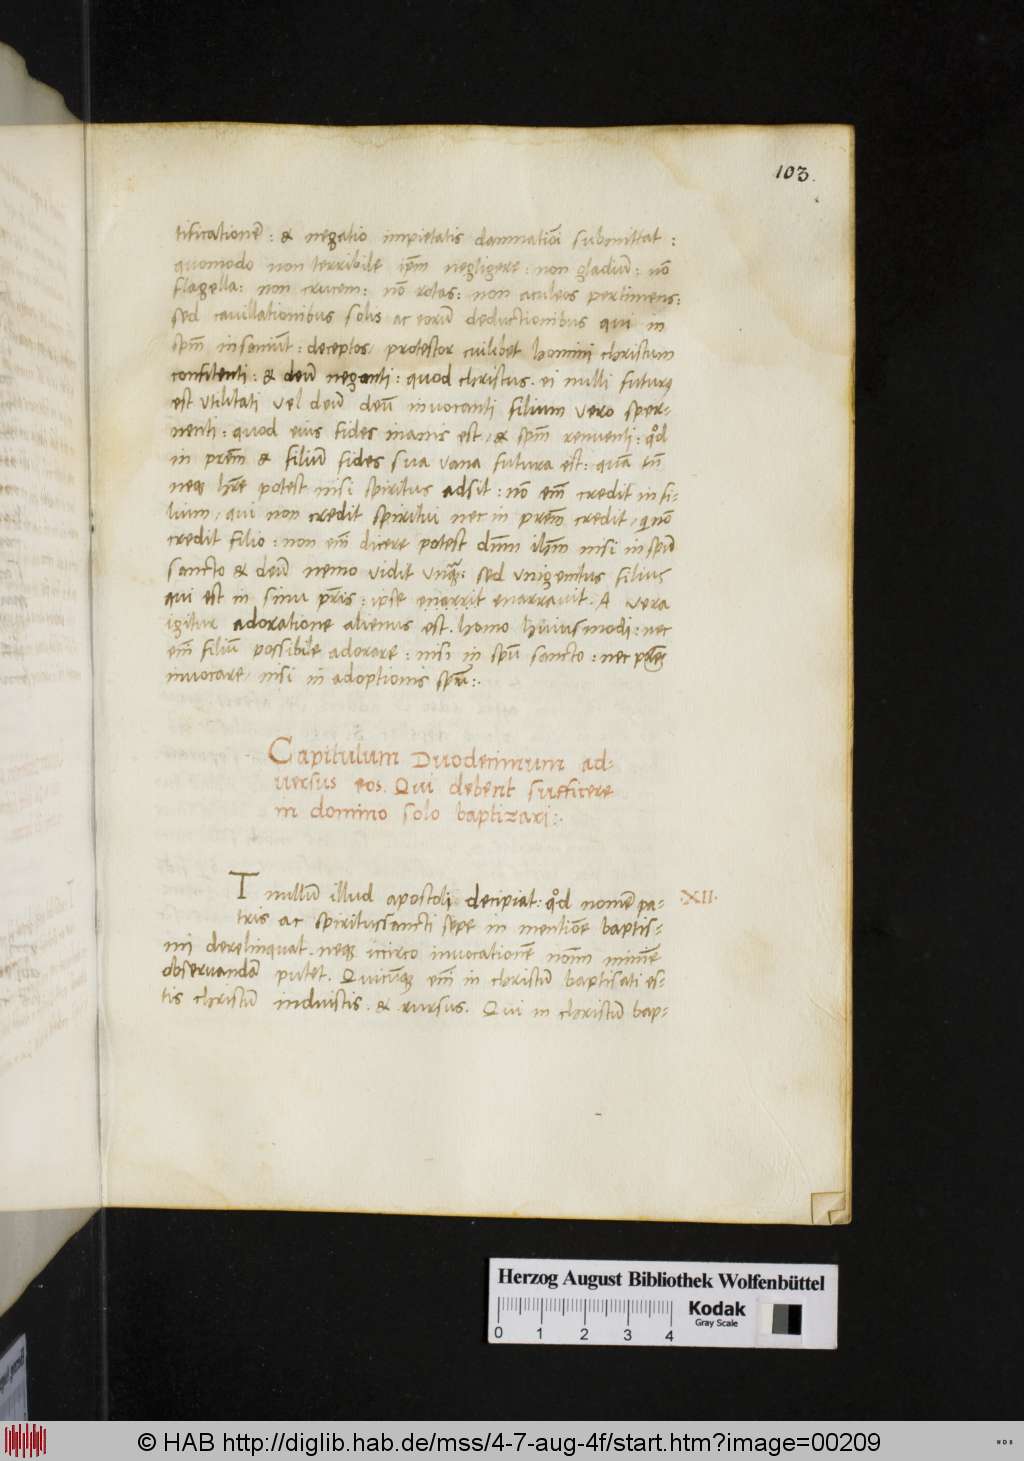 103.
tificationē : & negatio impietatis damnatiōi submittat :
quomodo non terribile ip̄m negligere : non gladiū : nō
flagella : non crucem : nō rotas : non aculeos pertimens :
sed cauillationibus solis ac eorū deductionibus qui in
sp̄m insaniūt : deceptos, protestor cuilibet homini christum
confitenti : & deū neganti : quod christus . ei nulli futurꝰ
est vtilitati vel deū deū inuocanti filium vero sper-
nenti : quod eius fides inanis est, & sp̄m renuenti : qd̄
in prēm & filiū fides sua vana futura est : quā tn̄
neqꝫ hr̄e potest nisi spiritus adsit : nō em̄ credit in fi-
lium, qui non credit spiritui nec in prēm credit, qnō
credit filio : non em̄ dicere potest dn̄m ih̄m nisi in spū
sancto & deū nemo vidit vnq̄ꝫ : sed vnigenitus filius
qui est in sinu pr̄is : ipse enarrit enarrauit . A vera
igitur adoratione alienus est . homo huiusmodi : nec
em̄ filiū possibile adorare : nisi in spū sancto : nec prēꝫ
inuocare, nisi in adoptionis spū : .
Capitulum Duodecimum ad-
uersus eos . Qui deberit sufficere
in domino solo baptizari : .
T nullū illud apostoli decipiat : qd̄ nomē pa- ·XII·
tris ac spiritussancti sępe in mentiōe baptis-
mi derelinquat . neqꝫ iccirco inuocationē noīm mimīe
obseruandā putet . Quicūqꝫ em̄ in christū baptisati es-
tis christū induistis . & rursus . Qui in christū bap-
Herzog August Bibliothek Wolfenbüttel
Kodak
Gray Scale
0 1 2 3 4
© HAB http://diglib.hab.de/mss/4-7-aug-4f/start.htm?image=00209